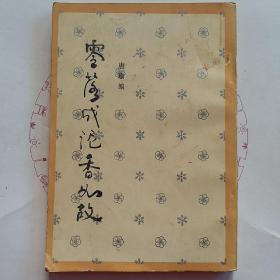 零落成泥香如故
唐瑜编